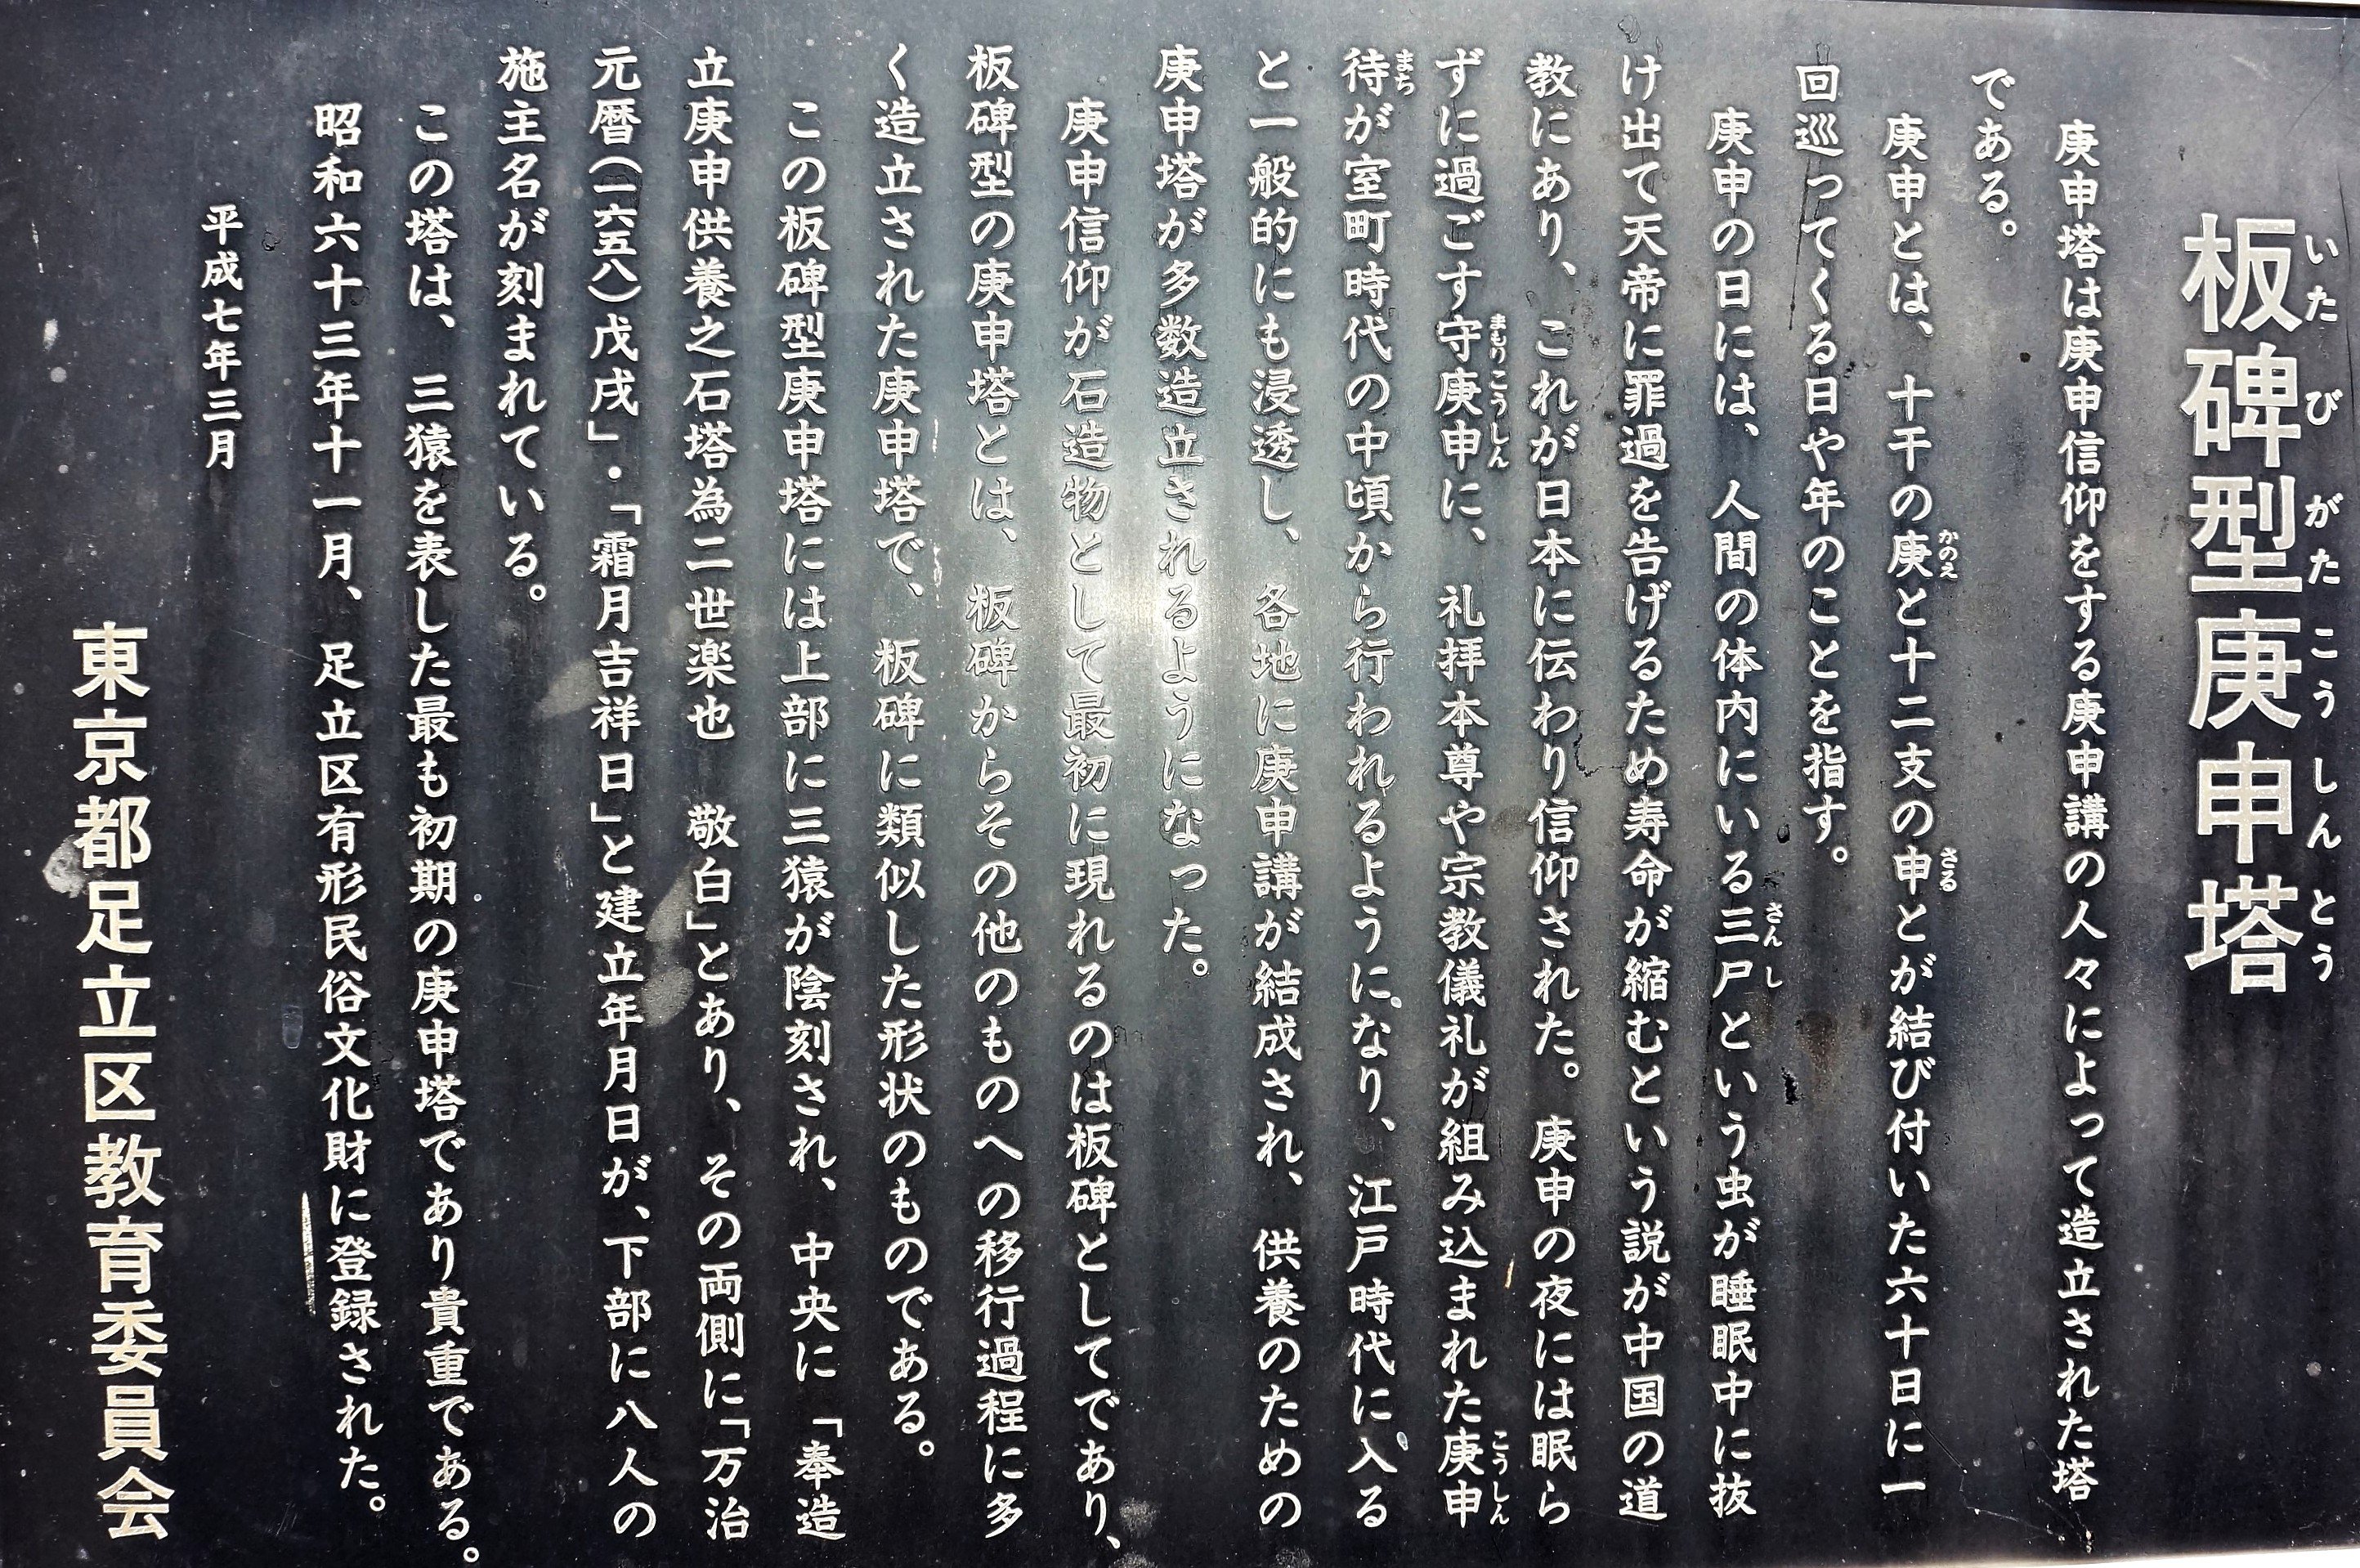 板碑型庚申塔
いたびがたこうしんとう
庚申塔は庚申信仰をする庚申講の人々によって造立された塔
である。
庚申とは、十干の庚と十二支の申とが結び付いた六十日に一
かのえ
さる
回巡ってくる日や年のことを指す。
庚申の日には、人間の体内にいる三尸という虫が睡眠中に抜
さんし
け出て天帝に罪過を告げるため寿命が縮むという説が中国の道
教にあり、これが日本に伝わり信仰された。庚申の夜には眠ら
ずに過ごす守庚申に、礼拝本尊や宗教儀礼が組み込まれた庚申
まもりこうしん
こうしん
待が室町時代の中頃から行われるようになり、江戸時代に入る
まち
と一般的にも浸透し、各地に庚申講が結成され、供養のための
庚申塔が多数造立されるようになった。
庚申信仰が石造物として最初に現れるのは板碑としてであり、
板碑型の庚申塔とは、板碑からその他のものへの移行過程に多
く造立された庚申塔で、板碑に類似した形状のものである。
この板碑型庚申塔には上部に三猿が陰刻され、中央に「奉造
立庚申供養之石塔為二世楽也　敬白」とあり、その両側に「万治
元暦(一六五八)戊戌」・「霜月吉祥日」と建立年月日が、下部に八人の
施主名が刻まれている。
この塔は、三猿を表した最も初期の庚申塔であり貴重である。
昭和六十三年十一月、足立区有形民俗文化財に登録された。
平成七年三月
東京都足立区教育委員会